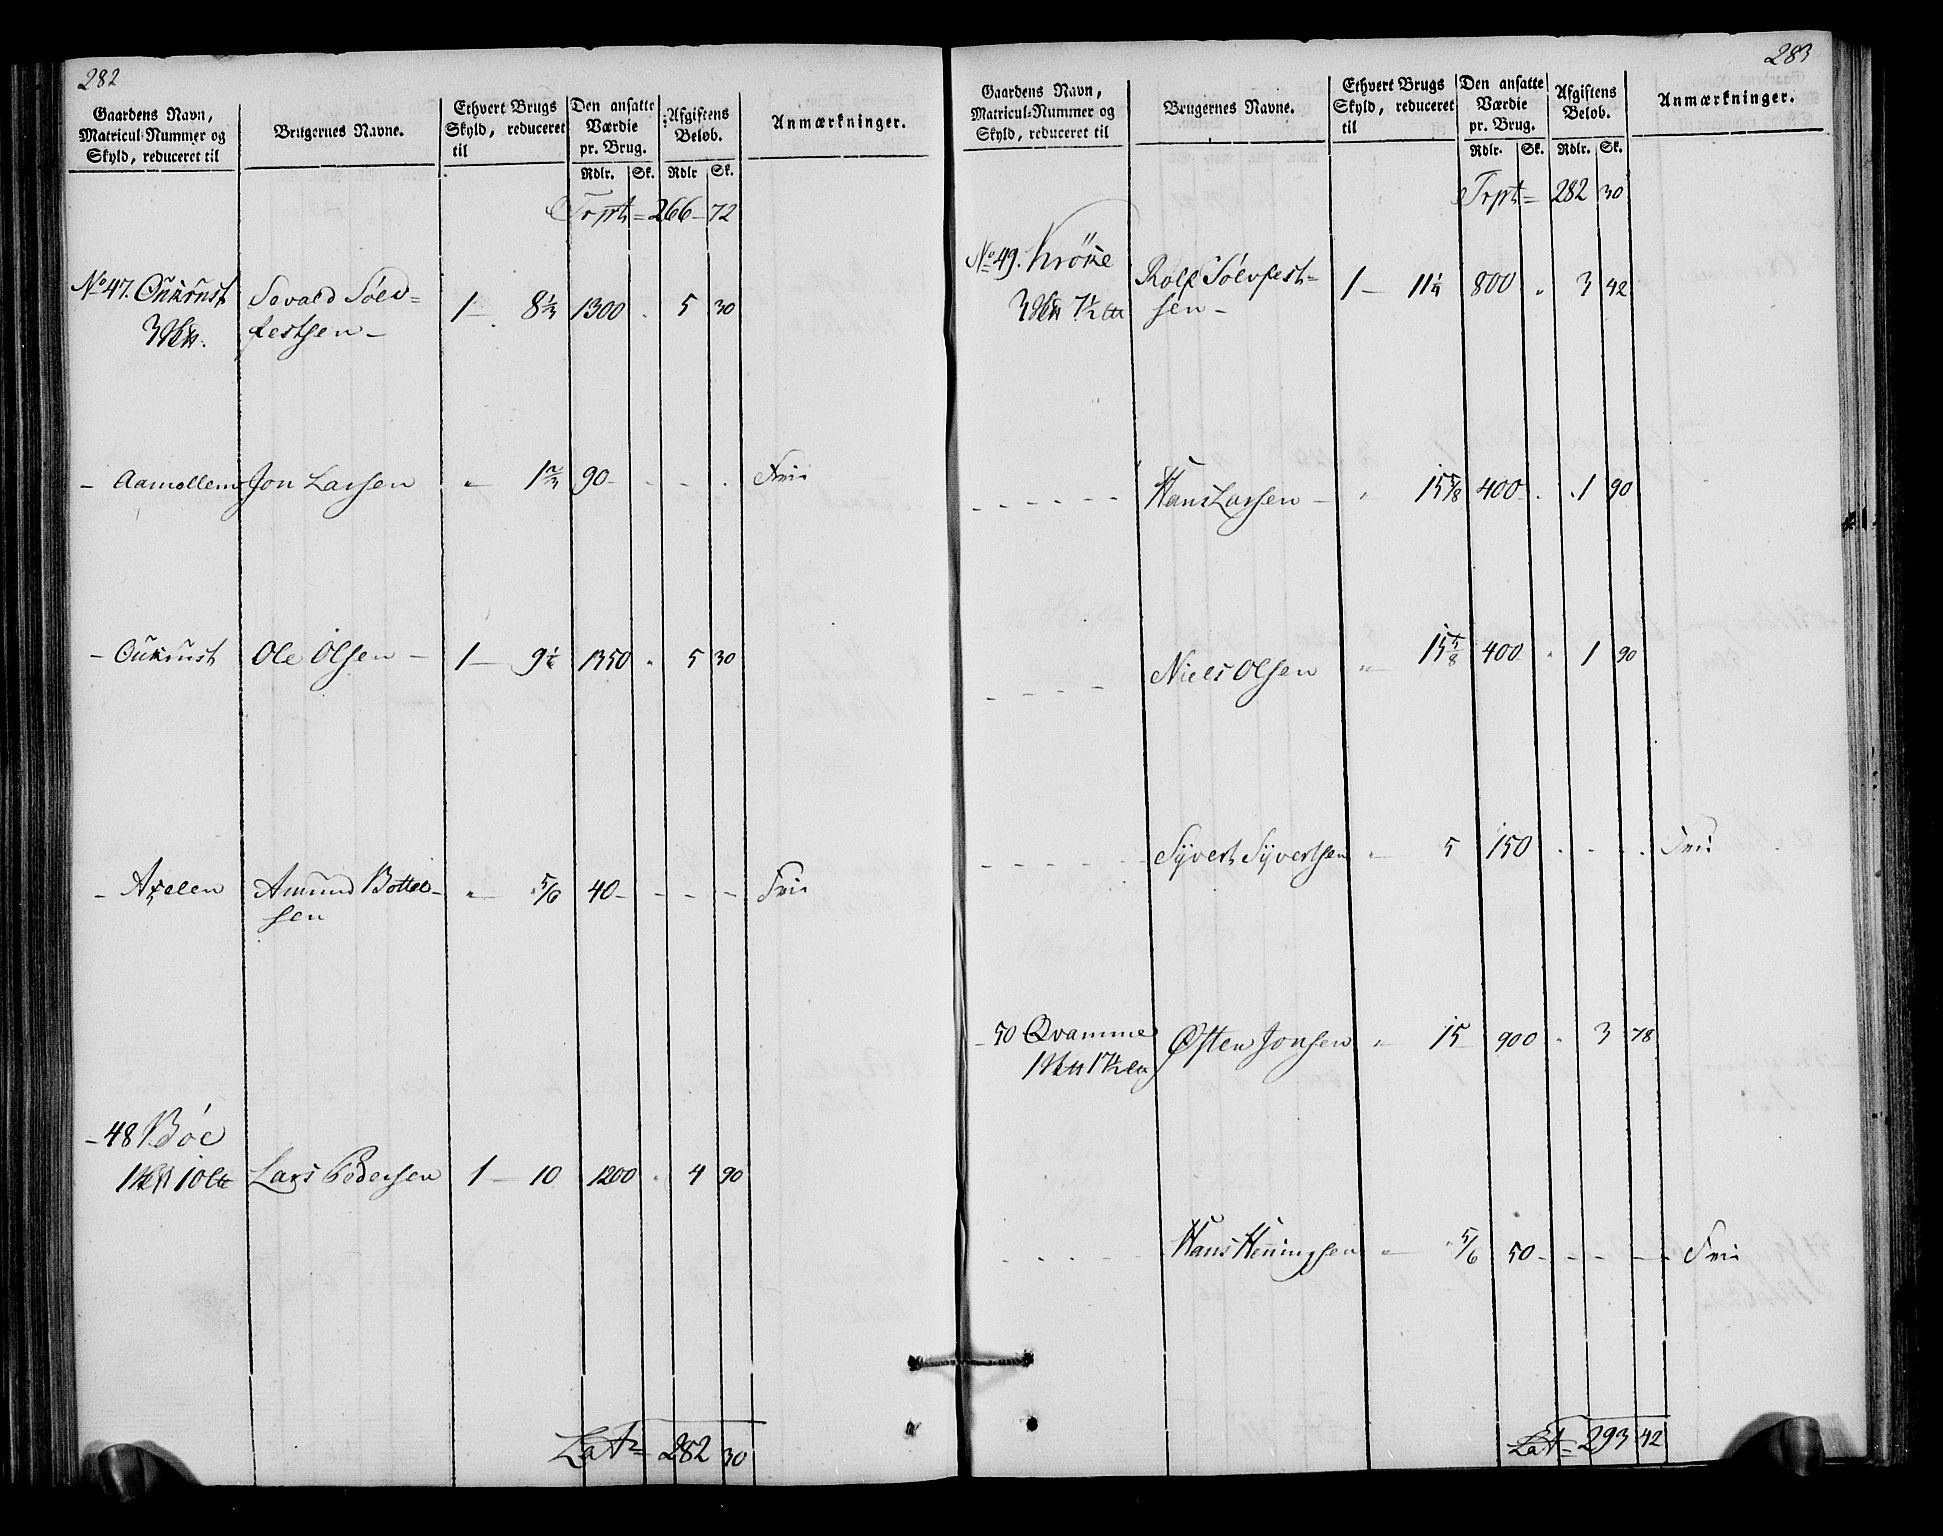 282
Gaardens Navn,
Matricul-Nummer og
Skyld, reduceret til
Brugernes Navne.
Ethvert Brugs
Skyld, reduceret
til
Den ansatte
Værdie
pr. Brug.
Afgiftens
Beløb.
Anmærkninger.
Rdlr. Sk. Rdlr Sk.
Trpt = 266 - 72
No 47.
Sevald Sölv=
festsen -
1 - 8 1/3 1300 . 5 30
- Aamollem Jon Larsen " 1 2/3 90 - - - . Frii
- Ole Olsen - 1 - 9 1/6 1350 " 5 30
- Axelen Amund Bottel-
sen
" 5/6 40 - - - - Frii
- 48 Böe
Lars Pedersen 1 - 10 1200 " 4 90
Lat = 282 30
283
Gaardens Navn,
Matricul-Nummer og
Skyld, reduceret til
Brugernes Navne.
Ethvert Brugs
Skyld, reduceret
til
Den ansatte
Værdie
pr. Brug.
Afgiftens
Beløb.
Anmærkninger.
Rdlr. Sk. Rdlr. Sk.
Trpt = 282 30
No 49. Kröke
Rolf Sölvfest-
sen -
1 - 11 1/4 800 " 3 42
- - - - - - Hans Larsen - " 15 5/8 400 - . . 1 90
- - - - Niels Olsen " 15 5/8 400 " 1 90
- - - - - - Syvert Syvertsen " 5 150 . . . . Frii
- 50 Qvamme Östen Jonsen " 15 900 " 3 78
- - - - Hans Henningsen " 5/6 50 - - - - - Frii
Lat = 293 42